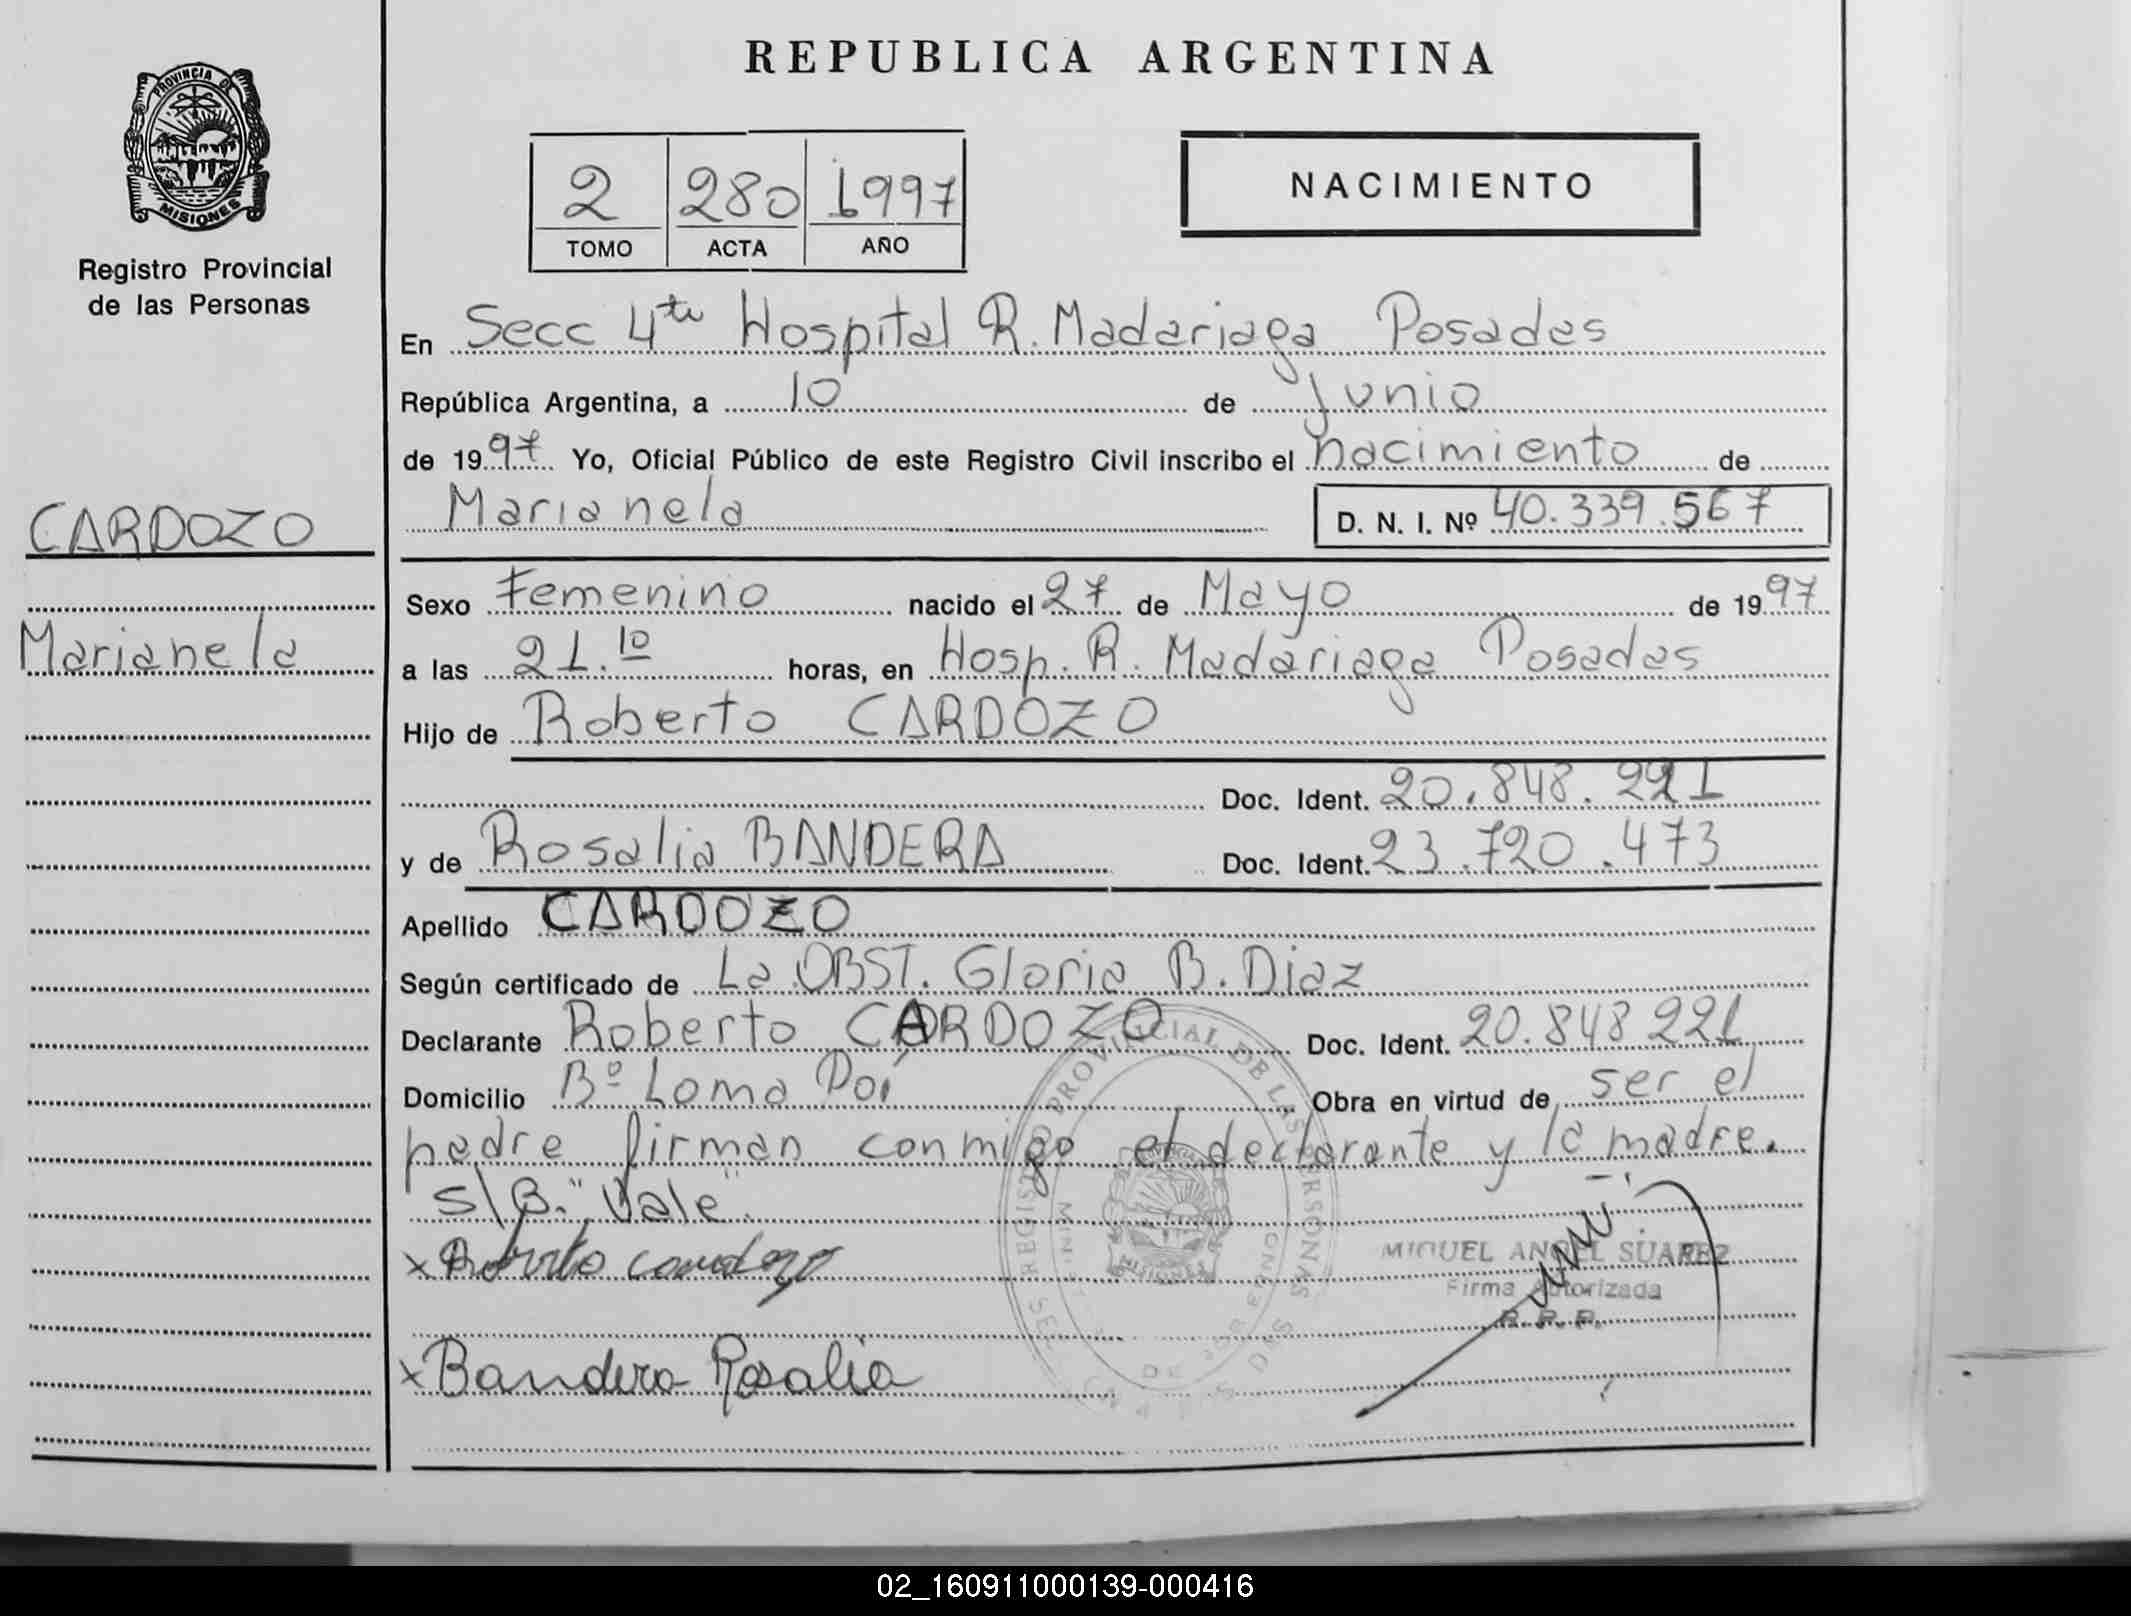 REPUBLICA ARGENTINA
PROVINCIA DE
MISIONES
Registro Provincial
de las Personas
2 280 1997
TOMO ACTA AÑO
NACIMIENTO
En Secc 4ta Hospital R. Madariaga Posadas
República Argentina, a 10 de junio
de 1997 Yo, Oficial Público de este Registro Civil inscribo el nacimiento de
Marianela D. N. I. Nº 40.339.567
CARDOZO
Marianela
Sexo Femenino nacido el 27 de Mayo de 1997
a las 21.10 horas, en Hosp. R. Madariaga Posadas
Hijo de Roberto CARDOZO
Doc. Ident. 20.848.221
y de Rosalia BANDERA Doc. Ident. 23.720.473
Apellido CARDOZO
Según certificado de La OBST. Gloria B. Diaz
Declarante Roberto CARDOZO Doc. Ident. 20.848 221
Domicilio Bº Loma Poí Obra en virtud de ser el
padre firman conmigo el declarante y la madre.
S/B. "Vale"
x Roberto cardozo
MIGUEL ANGEL SUAREZ
Firma Autorizada
R. P. P.
x Bandera Rosalia
REGISTRO PROVINCIAL DE LAS PERSONAS
MISIONES
02_160911000139-000416